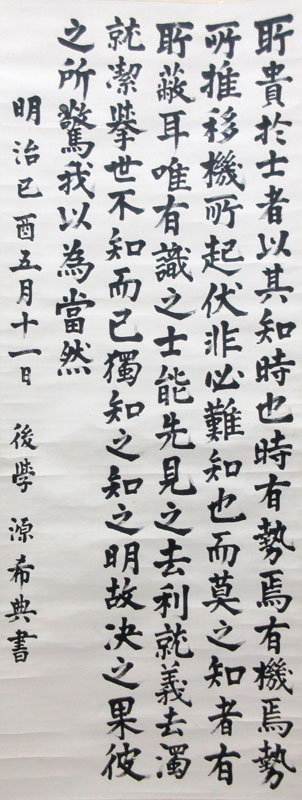 所貴於士者以其知時也時有勢焉有機焉勢
所推移機所起伏非必難知也而莫之知者有
所蔽耳唯有識之士能先見之去利就義去濁
就潔挙世不知而已獨知之知之明故決之果彼
之所驚我以為當然
明治己酉五月十一日 後學 源希典書